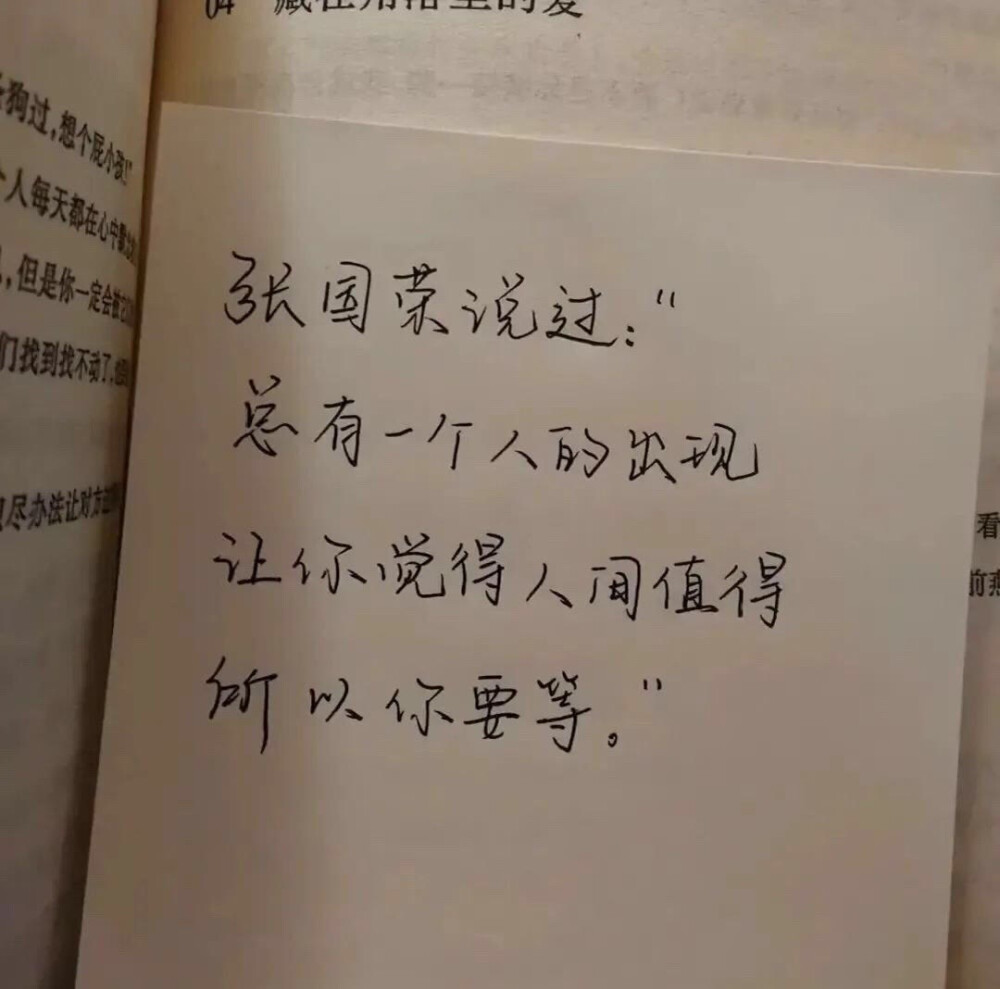 04 藏在角落里的爱
狗过,想个屁小孩!"
个人每天都在心中
但是你一定会被它
们找到找不动了,
尽办法让对方
张国荣说过:"
总有一个人的出现
让你觉得人间值得
所以你要等。"
看
前燕